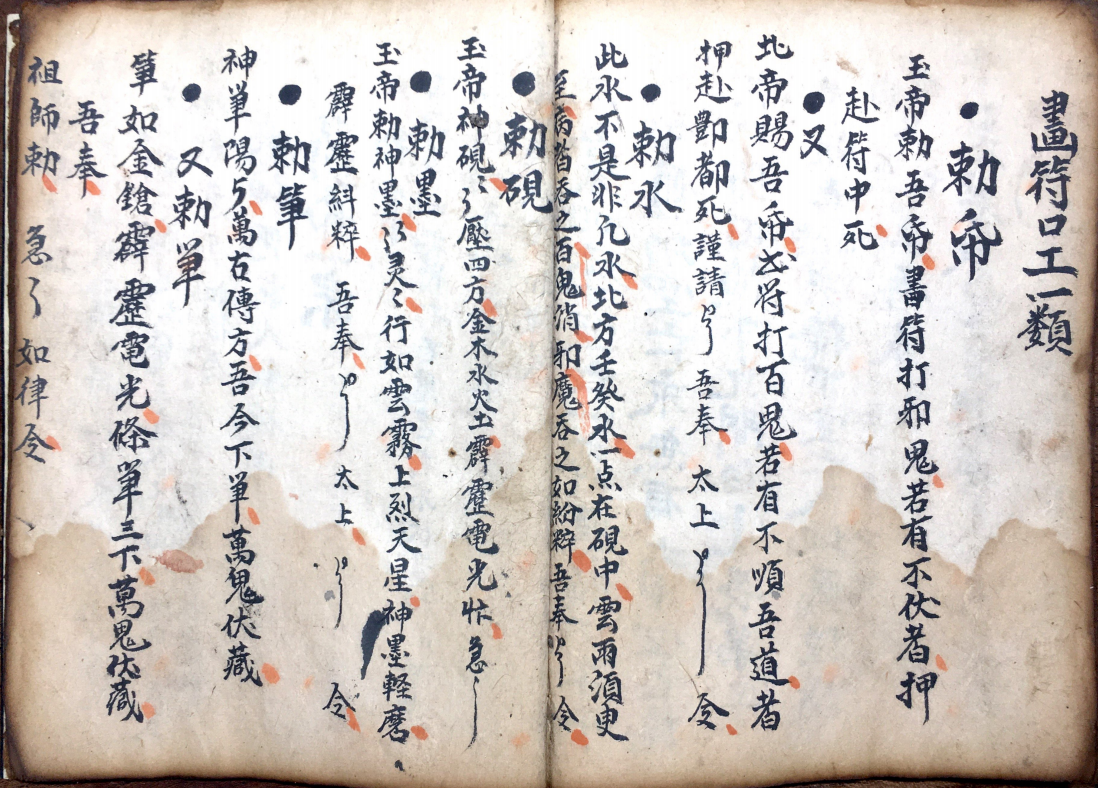 畫符口工一類
●勅帋
玉帝勅吾帋書符打邪鬼若有不伏者押
赴符中死
●又
北帝賜吾帋出符打百鬼若有不順吾道者
押赴酆都死謹請 吾奉 太上 令
●勅水
此水不是非凡水北方壬癸水一点在硯中雲雨須臾
至病者吞之百鬼消邪魔吞之如紛粹吾奉 令
●勅硯
玉帝神硯〻〻壓四方金木水火土霹靂電光 急
●勅墨
玉帝勅神墨〻灵〻行如雲霧上烈天星神墨軽磨
霹靂糾粹 吾奉 太上 令
●勅筆
神单陽 萬古傳方吾今下单萬鬼伏藏
●又勅单
筆如金鎗霹靂電光條单三下萬鬼伏藏
吾奉
祖師勅 急〻如律令